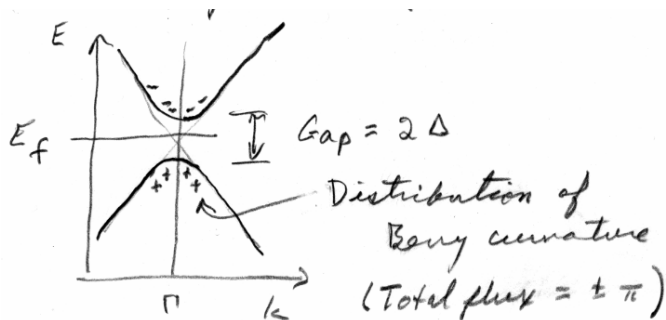 E
E_f
Gap = 2 Δ
Distribution of
Berry curvature
(Total flux = ± π)
Γ
k